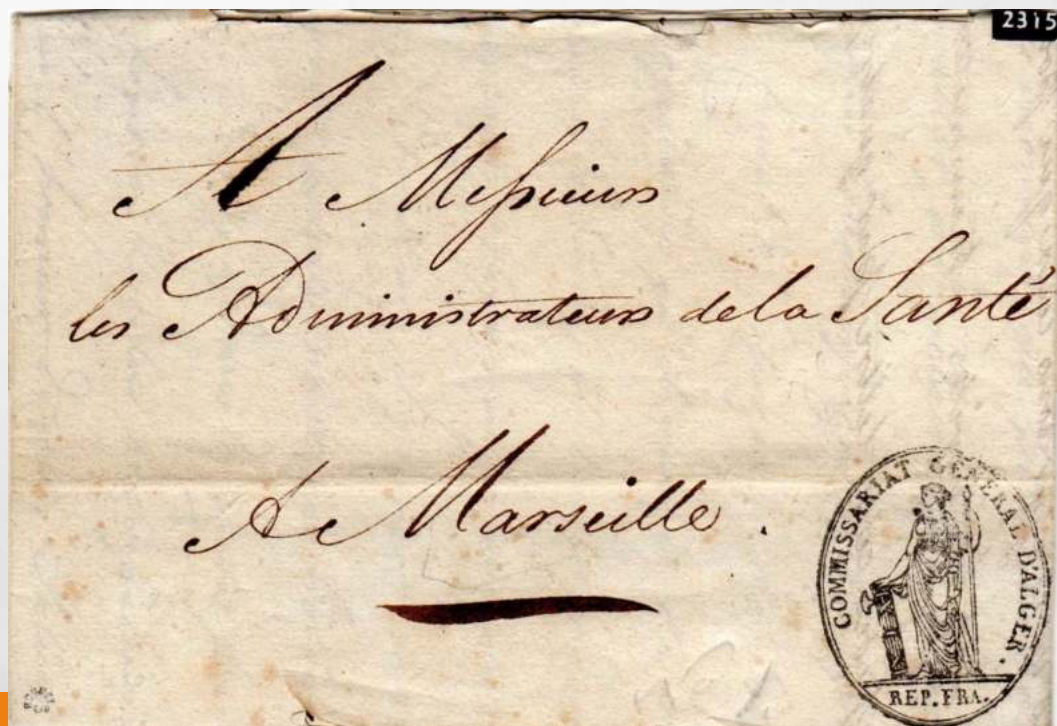 2315
A Messieurs
les Administrateurs de la Santé
A Marseille.
COMMISSARIAT GÉNÉRAL D'ALGER.
REP. FRA.